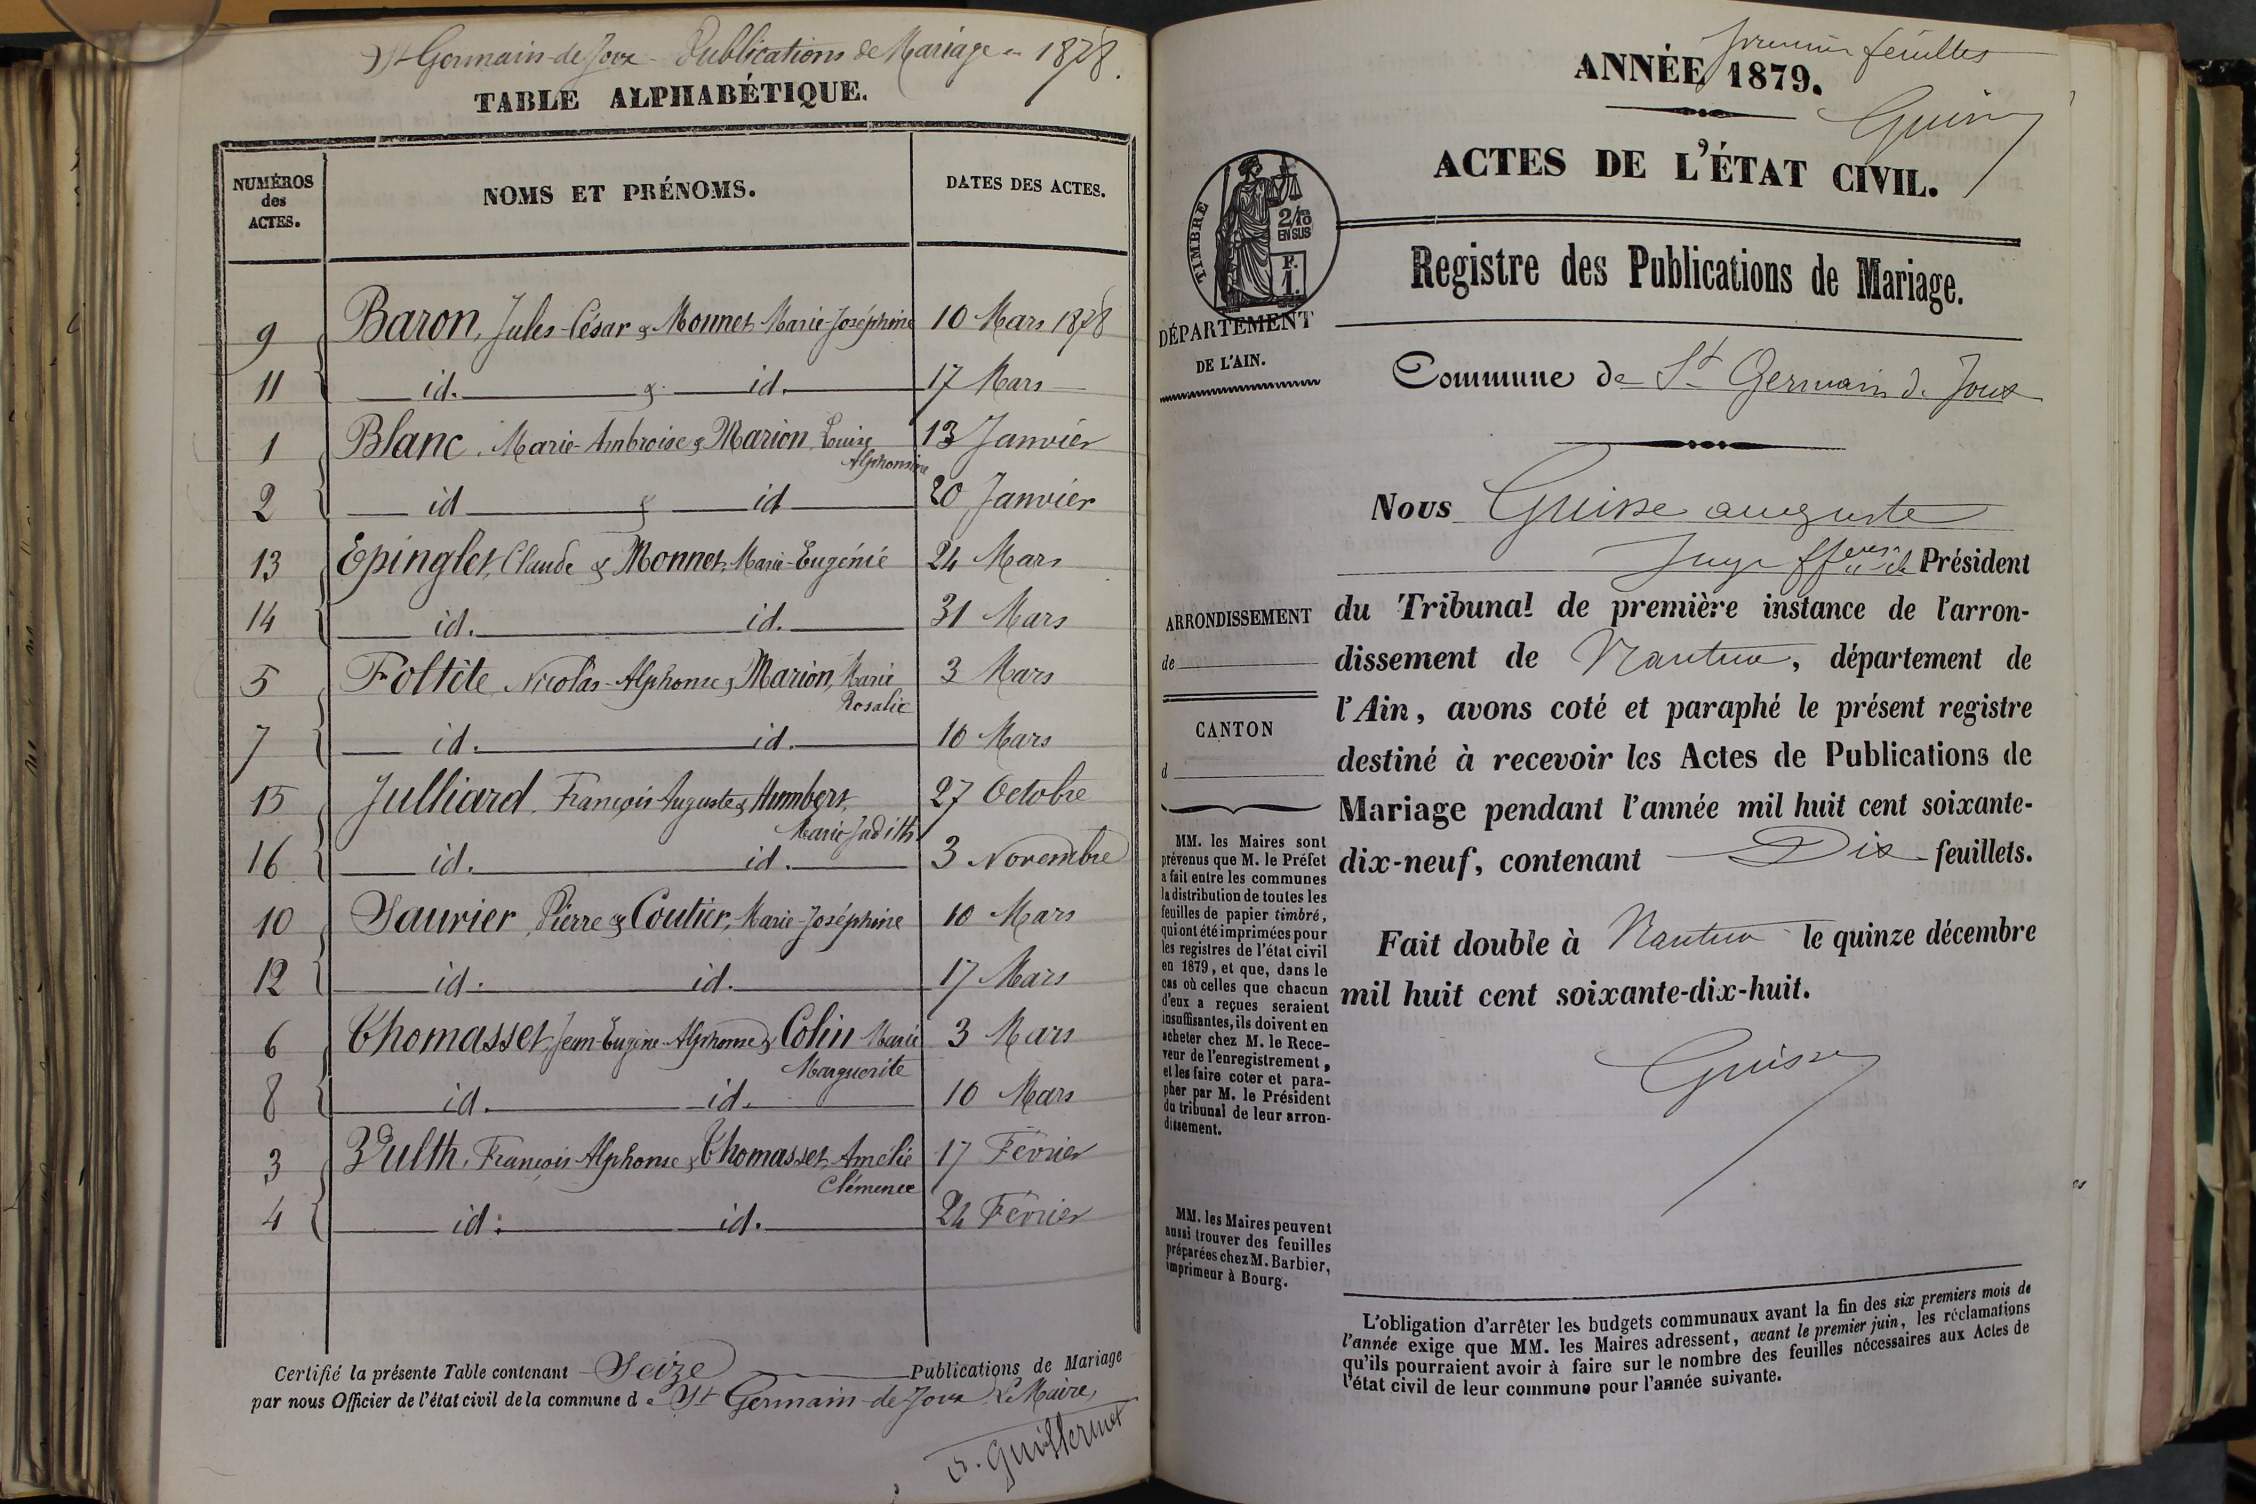 St Germain-de-Joux - Publications de Mariage en 1878.
TABLE ALPHABÉTIQUE.
NUMÉROS des ACTES. NOMS ET PRÉNOMS. DATES DES ACTES.
9 Baron, Jules-César & Monnet Marie-Joséphine 10 Mars 1878
11 id. & id. 17 Mars
1 Blanc, Marie-Ambroise & Marion Louise Alphonsine 13 Janvier
2 id & id 20 Janvier
13 Epinglet, Claude & Monnet, Marie-Eugénie 24 Mars
14 id. id. 31 Mars
5 Foltête Nicolas-Alphonse & Marion, Marie Rosalie 3 Mars
7 id. id. 10 Mars
15 Julliard, François Auguste & Humbert, Marie Judith 27 Octobre
16 id. id. 3 Novembre
10 Saurier, Pierre & Coutier, Marie-Joséphine 10 Mars
12 id. id. 17 Mars
6 Thomasset, Jean-Eugène-Alphonse & Colin Marie Marguerite 3 Mars
8 id. id. 10 Mars
3 Vulth, François Alphonse & Thomasset Amélie Clémence 17 Février
4 id. id. 24 Février
Certifié la présente Table contenant Seize Publications de Mariage
par nous Officier de l'état civil de la commune de St Germain-de-Joux Le Maire,
Guillermet
premier feuillet
ANNÉE 1879.
Guisse
ACTES DE L'ÉTAT CIVIL.
TIMBRE
2/10
EN SUS
F.
1.
Registre des Publications de Mariage.
DÉPARTEMENT
DE L'AIN.
Commune de St Germain de Joux
Nous Guisse auguste
Juge ff Président
du Tribunal de première instance de l'arron-
dissement de Nantua, département de
l'Ain, avons coté et paraphé le présent registre
destiné à recevoir les Actes de Publications de
Mariage pendant l'année mil huit cent soixante-
dix-neuf, contenant Dix feuillets.
Fait double à Nantua le quinze décembre
mil huit cent soixante-dix-huit.
Guisse
ARRONDISSEMENT
de
CANTON
d
MM. les Maires sont
prévenus que M. le Préfet
a fait entre les communes
la distribution de toutes les
feuilles de papier timbré,
qui ont été imprimées pour
les registres de l'état civil
en 1879, et que, dans le
cas où celles que chacun
d'eux a reçues seraient
insuffisantes, ils doivent en
acheter chez M. le Rece-
veur de l'enregistrement,
et les faire coter et para-
pher par M. le Président
du tribunal de leur arron-
dissement.
MM. les Maires peuvent
aussi trouver des feuilles
préparées chez M. Barbier,
imprimeur à Bourg.
L'obligation d'arrêter les budgets communaux avant la fin des six premiers mois de
l'année exige que MM. les Maires adressent, avant le premier juin, les réclamations
qu'ils pourraient avoir à faire sur le nombre des feuilles nécessaires aux Actes de
l'état civil de leur commune pour l'année suivante.